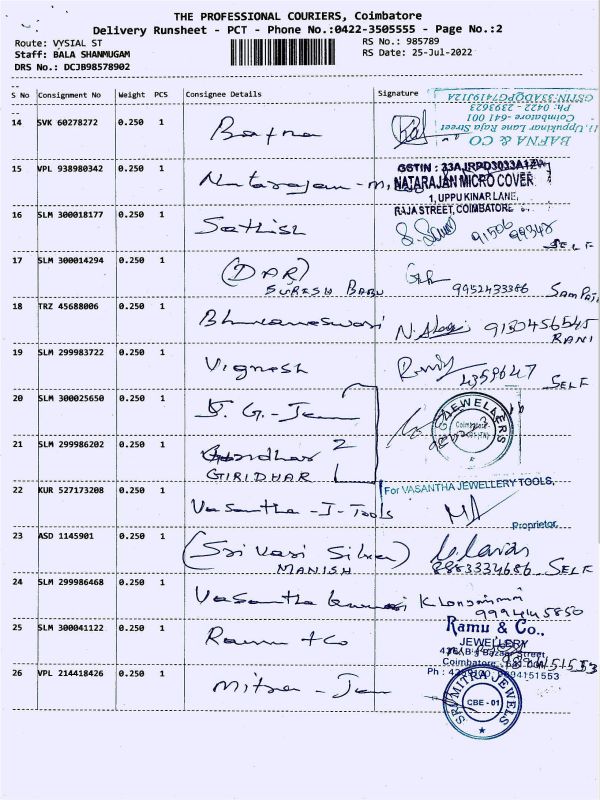 THE PROFESSIONAL COURIERS, Coimbatore
Delivery Runsheet - PCT - Phone No.:0422-3505555 - Page No.:2
Route: VYSIAL ST
RS No.: 985789
Staff: BALA SHANMUGAM
RS Date: 25-Jul-2022
DRS No.: DCJB98578902
S No Consignment No Weight PCS Consignee Details Signature
14 SVK 60278272 0.250 1 Bafna
BAFNA & CO
11, Uppukinar Lane Raja Street
Coimbatore -641 001
Ph: 0422 - 2393623
GSTIN:33ADQPG7419J1ZA
15 VPL 938980342 0.250 1 Natarajan - m,
GSTIN : 33AJRPD3033A1ZW
NATARAJAN MICRO COVER
1, UPPU KINAR LANE,
RAJA STREET, COIMBATORE
16 SLM 300018177 0.250 1 Sathish
91506 99348
SELF
17 SLM 300014294 0.250 1 (DPR)
SURESH BABU
9952433386
18 TRZ 45688006 0.250 1 Bhuvaneswari
9130456545
RANI
19 SLM 299983722 0.250 1 Vignesh
4359647 SELF
20 SLM 300025650 0.250 1 J. G. - Jem
JEWELLERS
21 SLM 299986202 0.250 1 2
GIRIDHAR
22 KUR 527173208 0.250 1 Vasantha - J - Tools
For VASANTHA JEWELLERY TOOLS,
Proprietor
23 ASD 1145901 0.250 1 (Sri Vari Silver)
MANISH
8883334686 SELF
24 SLM 299986468 0.250 1 Vasantha Kumari
9994445850
25 SLM 300041122 0.250 1 Ramu & Co
Ramu & Co.,
JEWELLERY
Bazaar Street,
Coimbatore
26 VPL 214418426 0.250 1 Mitra - Jem
SRI MITRA JEWELS
CBE - 01